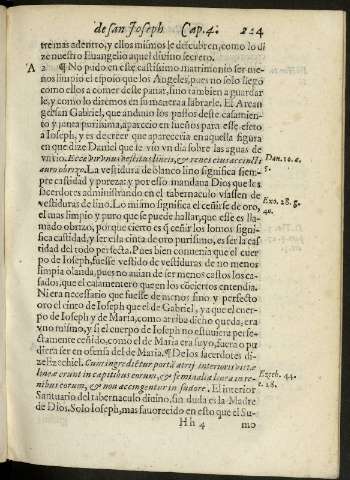 de San Joseph. Cap. 4. 224
tre mas adentro, y ellos mismos le descubren, como lo di
ze nuestro Euangelio aquel diuino secreto.
A 2 ¶ No pudo en este castissimo matrimonio ser me-
nos limpio el esposo que los Angeles, pues no solo llegò
como ellos a comer deste panar, sino tambien a guardar
le, y como lo diremos en su manera a labrarle. El Arcan
gel san Gabriel, que anduuo los passos deste casamien-
to y junta purissima, aparecio en sueños para este efeto
a Ioseph, y es de creer que apareceria en aquella figura
en que dize Daniel que le vio vn dia sobre las aguas de
vn rio. Ecce vir vnus vestitus lineis, & renes eius accincti
auro obrizo. La vestidura de blanco lino significa siem-
pre castidad y pureza, y por esso mandaua Dios que los
sacerdotes administrando en el tabernaculo vsassen de
vestiduras de lino. Lo mismo significa el ceñirse de oro,
el mas limpio y puro que se puede hallar, que esse es lla-
mado obrizo, porque cierto es q̃ ceñir los lomos signi-
fica castidad, y ser esta cinta de oro purissimo, es ser la cas
tidad del todo perfecta. Pues bien conuenia que el cuer
po de Ioseph, fuesse vestido de vestiduras de no menos
limpia olanda, pues no auian de ser menos castos los ca-
sados, que el casamentero que en los cõciertos entendia.
Ni era necessario que fuesse de menos fino y perfecto
oro el cinto de Ioseph que el de Gabriel, ya que el cuer-
po de Ioseph y de Maria, como arriba dicho queda, era
vno mismo, y si el cuerpo de Ioseph no estuuiera perfe-
ctamente ceñido, como el de Maria era suyo, fuera o pu
diera ser en ofensa del de Maria. ¶ De los sacerdotes di-
ze Ezechiel. Cum ingrediẽtur portã atrij interioris vesta
linea erunt in capitibus eorum, & feminalia linea in re-
nibus eorum, & non accingentur in sudore. El interior
Santuario del tabernaculo diuino, sin duda es la Madre
de Dios. Solo Ioseph, mas fauorecido en esto que el Su-
Hh 4 mo
Dan. 10. a.
5.
Exo. 28. g.
40.
Ezech. 44.
c. 18.